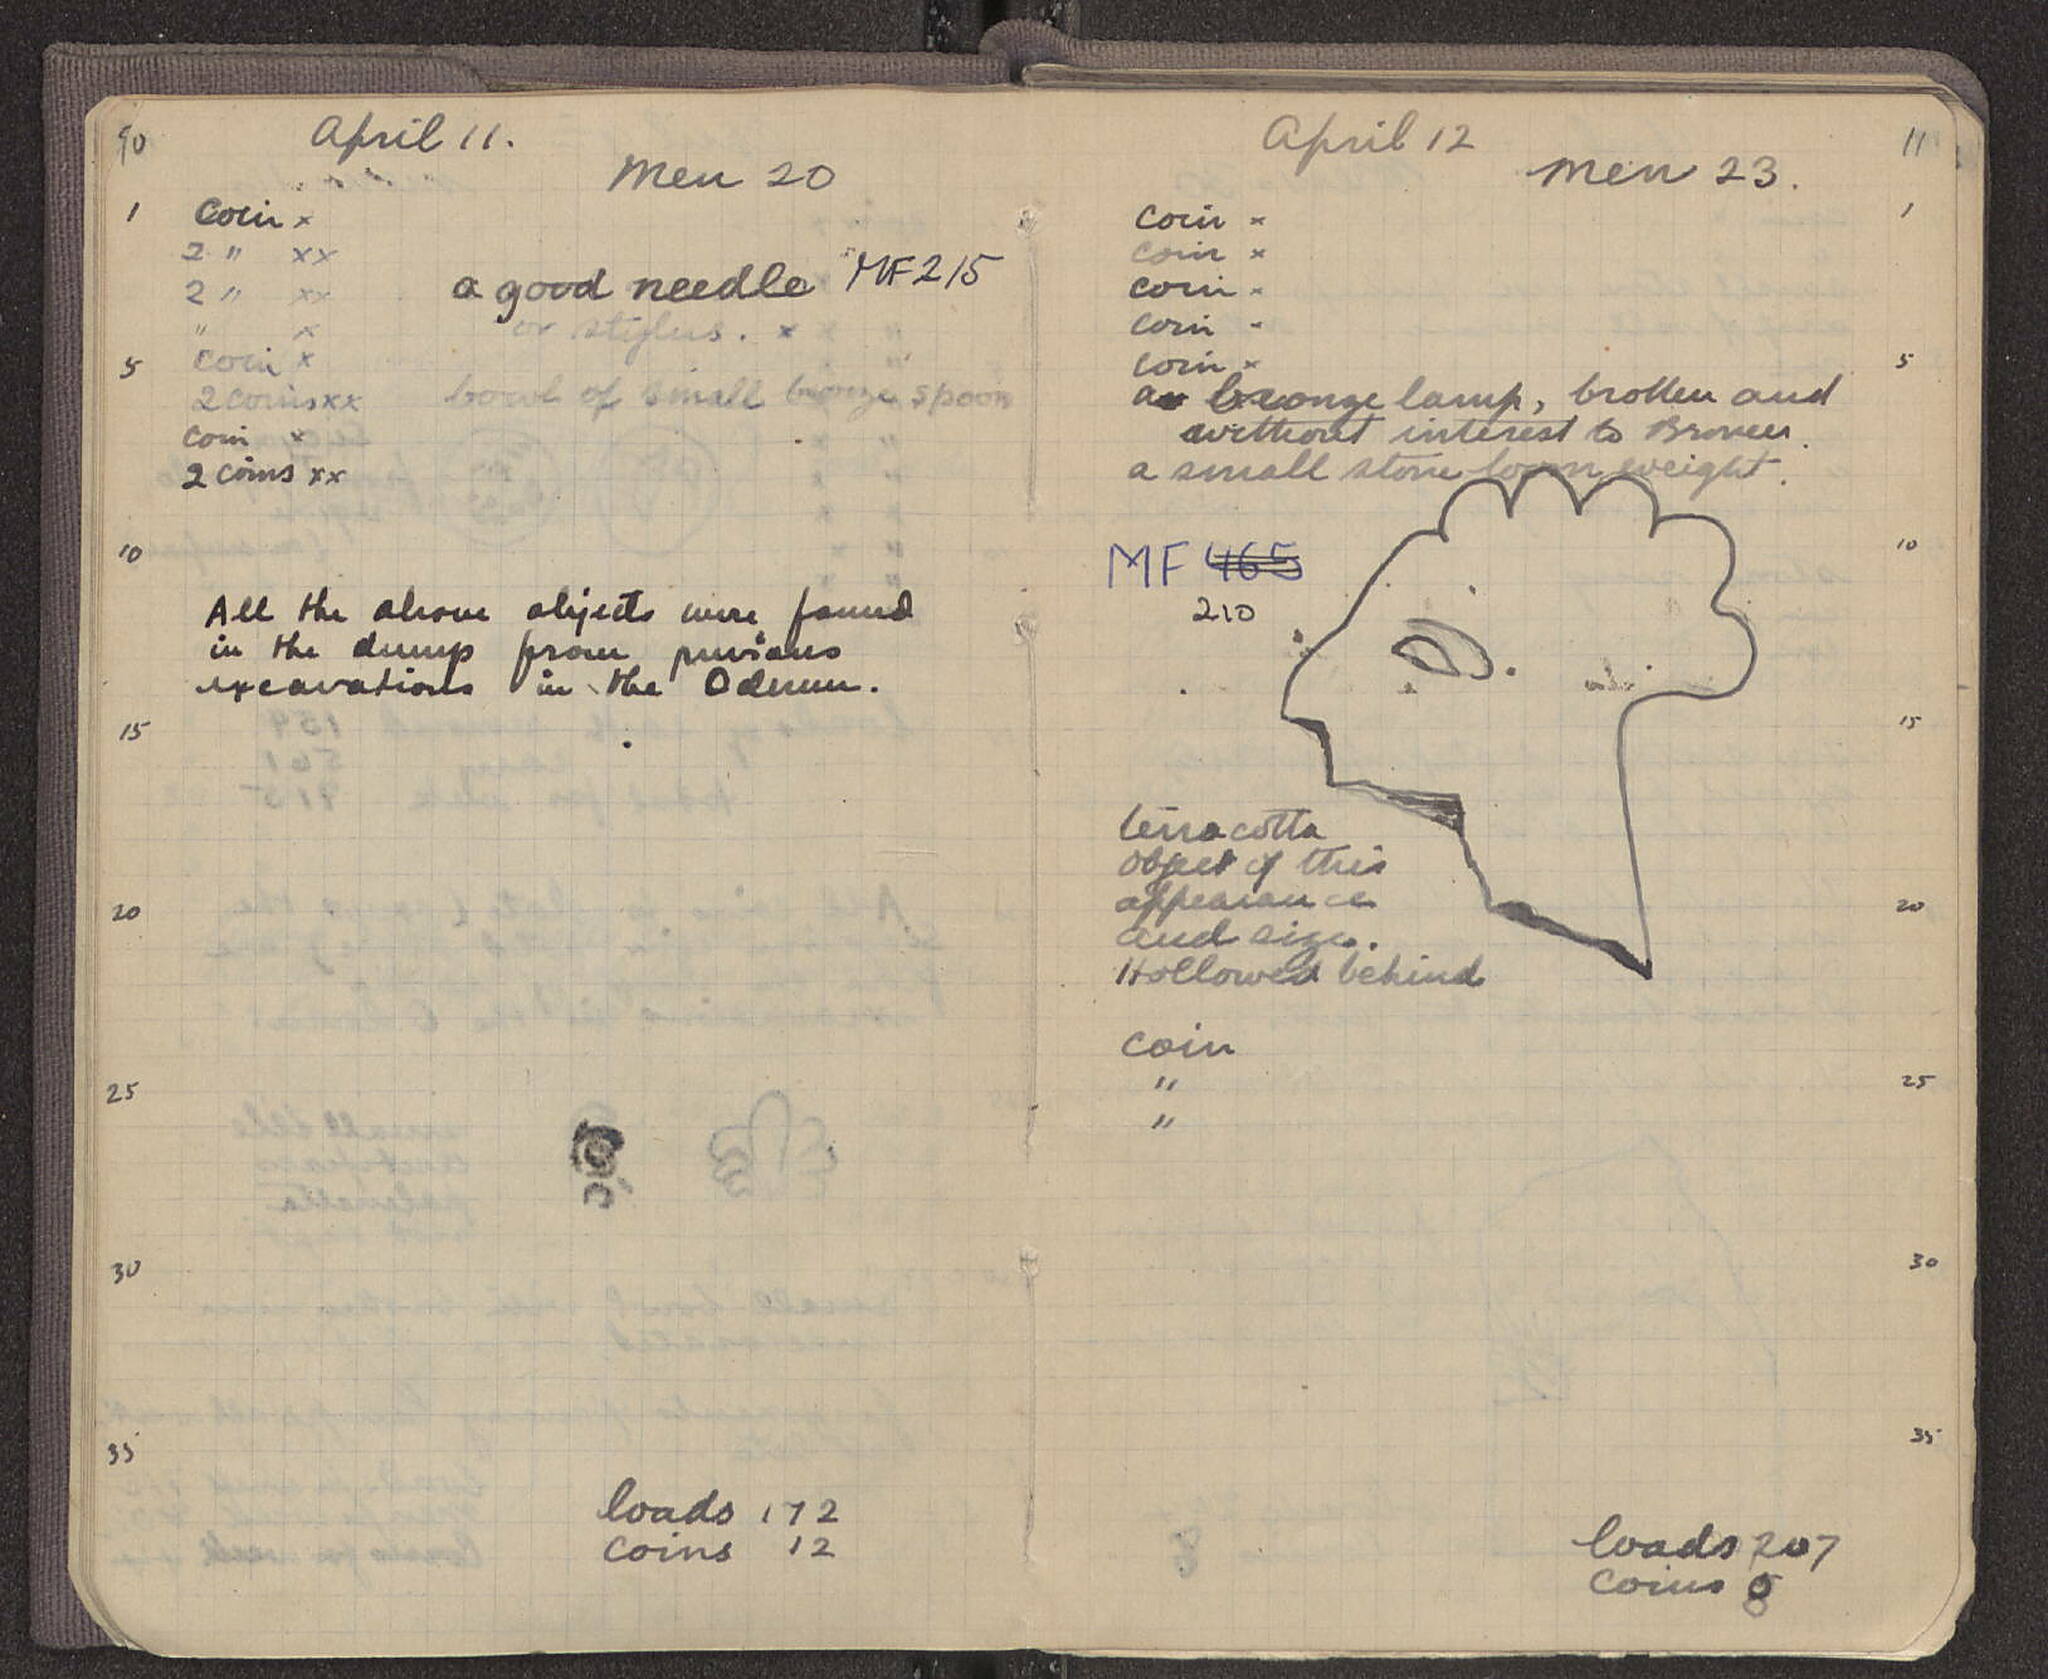 April 11.
Men 20
1 Coin x
2 " xx
2 " xx
a good needle MF 215
" x or stylus. x
5 Coin x
2 coins xx bowl of small bronze spoon
coin x
2 coins xx
10
All the above objects were found
in the dump from previous
excavations in the Odeum.
15
20
25
30
35
loads 172
coins 12
April 12 11
Men 23.
coin x 1
coin x
coin x
coin -
coin x 5
a bronze lamp, broken and
without interest to Broneer.
a small stone loom weight.
10
MF 465
210
15
terracotta
object of this
appearance 20
and size.
Hollowed behind
coin
" 25
"
30
35
loads 207
coins 8